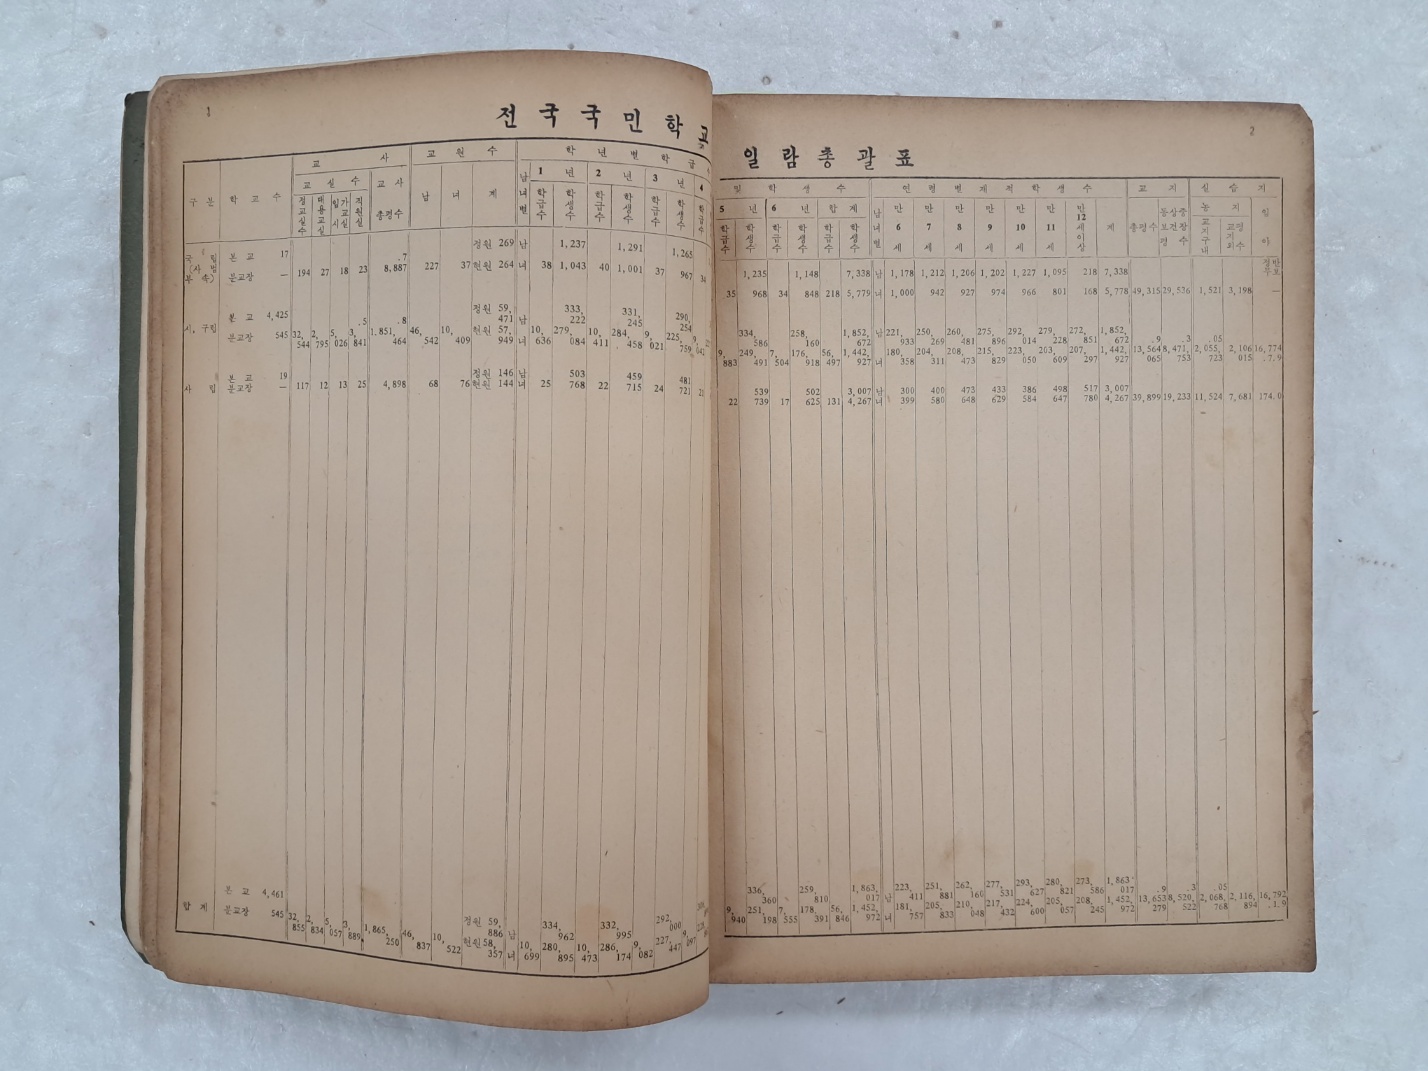 1
전국국민학교
구분 학교수 교사 교원수 학년별학급
교실수 교사 남 녀 계 남녀별 1년 2년 3년 4
정교실수 대용교실 임시가교실 직원실 총평수 학급수 학생수 학급수 학생수 학급수 학생수 학급수
국립 본교 17 .7 정원 269 남 1,237 1,291 1,265
(사범부속) 분교장 — 194 27 18 23 8,887 227 37 현원 264 녀 38 1,043 40 1,001 37 967 34
시,구립 본교 4,425 .5 .8 정원 59,471 남 333,222 331,245 290,254
분교장 545 32,544 2,795 5,026 3,841 1,851,464 46,542 10,409 현원 57,949 녀 10,636 279,084 10,411 284,458 9,021 225,759
본교 19 정원 146 남 503 459 481
사립 분교장 — 117 12 13 25 4,898 68 76 현원 144 녀 25 768 22 715 24 721 21
본교 4,461 정원 59,886 남 334,962 332,995 292,000
합계 분교장 545 32,855 2,834 5,057 3,889 1,865,250 46,837 10,522 현원 58,357 녀 10,699 280,895 10,473 286,174 9,082 227,447 9,097
2
일람총괄표
및학생수 연령별재적학생수 교지 실습지
5년 6년 합계 남녀별 만6세 만7세 만8세 만9세 만10세 만11세 만12세이상 계 총평수 농지 임야
학급수 학생수 학급수 학생수 학급수 학생수 교지구내
1,235 1,148 7,338 남 1,178 1,212 1,206 1,202 1,227 1,095 218 7,338
35 968 34 848 218 5,779 녀 1,000 942 927 974 966 801 168 5,778 49,315 29,536 1,521 3,198 —
334,586 258,160 1,852,672 남 221,933 250,269 260,481 275,896 292,014 279,228 272,851 1,852,672 .9 .3 .05
9,883 249,491 7,504 176,918 56,497 1,442,927 녀 180,358 204,311 208,473 215,829 223,050 203,609 207,297 1,442,927 13,564,065 8,471,753 2,055,723 2,106,015 16,774,.7.9
539 502 3,007 남 300 400 473 433 386 498 517 3,007
22 739 17 625 131 4,267 녀 399 580 648 629 584 647 780 4,267 39,899 19,233 11,524 7,681 174.0
336,360 259,810 1,863,017 남 223,411 251,881 262,160 277,531 293,627 280,821 273,586 1,863,017 .9 .3 .05
9,940 251,198 7,555 178,391 56,846 1,452,972 녀 181,757 205,833 210,048 217,432 224,600 205,057 208,245 1,452,972 13,653,279 8,520,522 2,068,768 2,116,894 16,792,.1.9